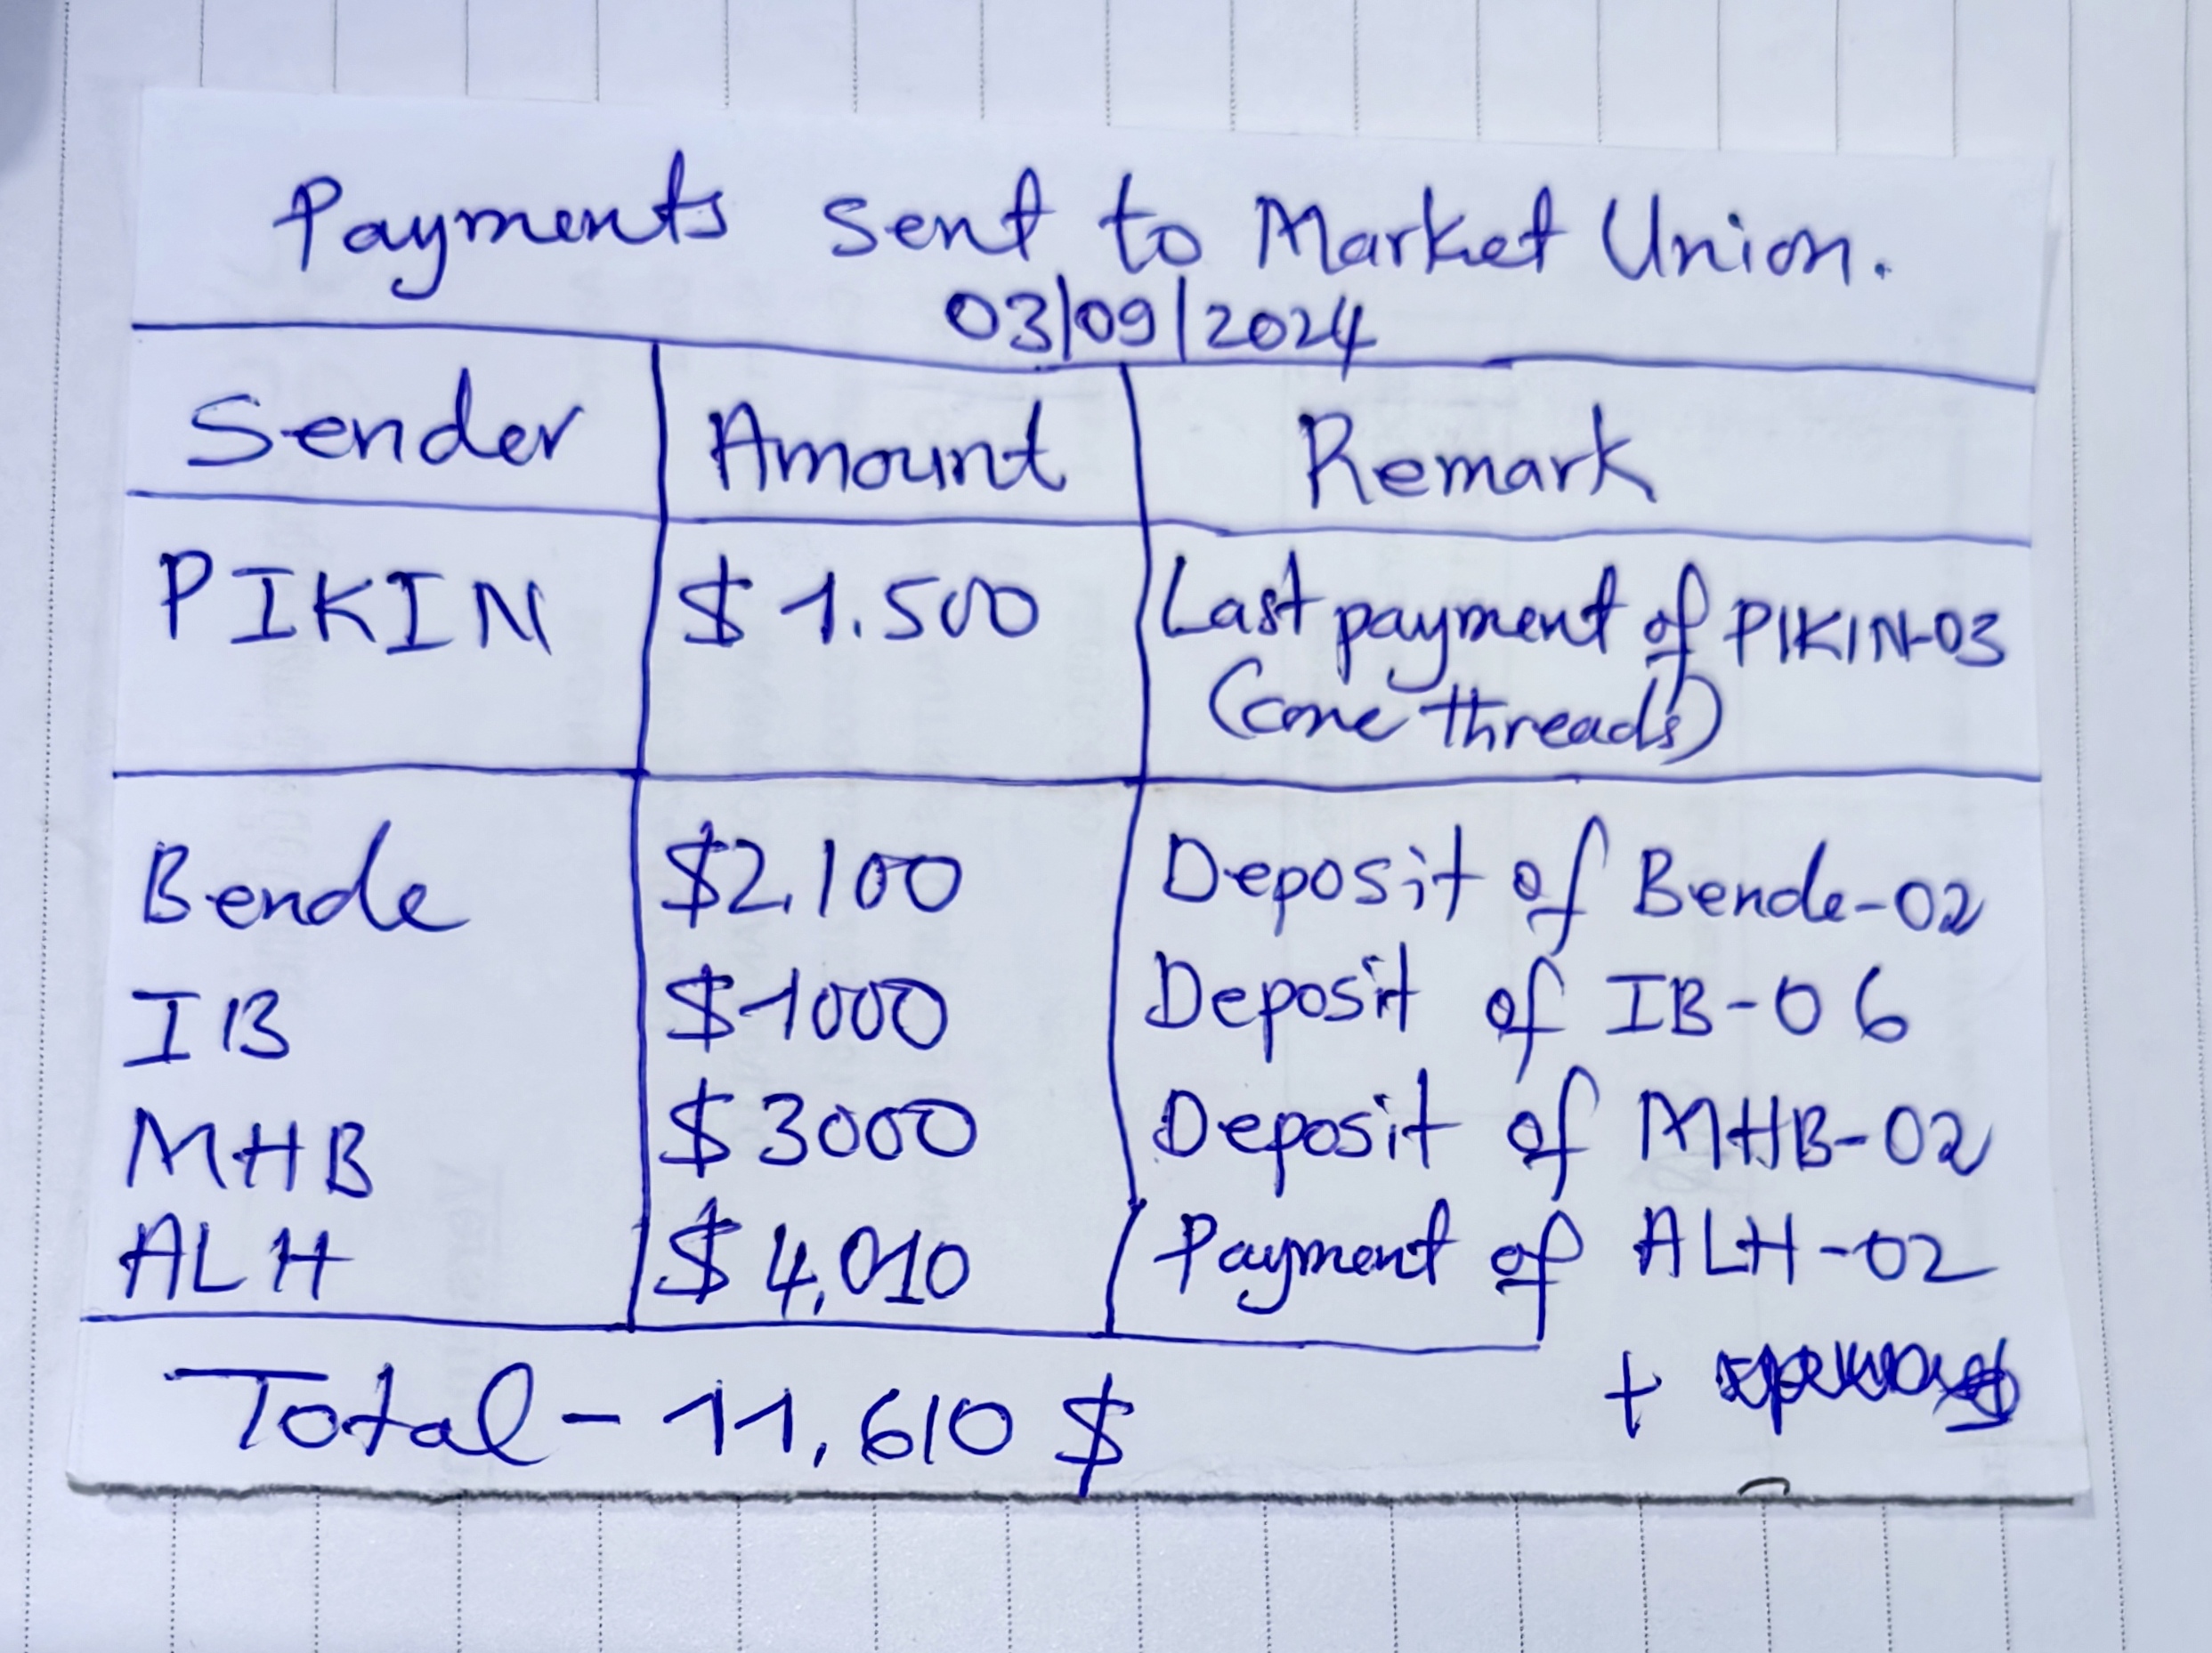 Payments sent to Market Union.
03/09/2024
Sender Amount Remark
PIKIN $ 1.500 Last payment of PIKIN-03
(cone threads)
Bende $2,100 Deposit of Bende-02
IB $1000 Deposit of IB-06
MHB $3000 Deposit of MHB-02
ALH $4,010 Payment of ALH-02
+
Total - 11,610 $